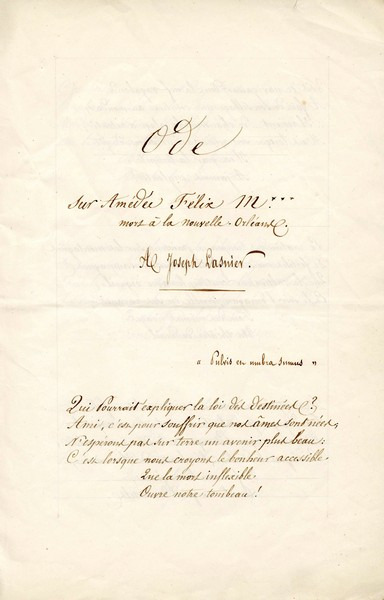 Ode
sur Amédée Félix M.***
mort à la nouvelle-Orléans.
A Joseph Lasnier.
« Pulvis en umbra sumus »
Qui Pourrait expliquer la loi des Destinées?
Ami, c'est pour souffrir que nos âmes sont nées,
N'espérons pas sur terre un avenir plus beau:
C'est lorsque nous croyons le bonheur accessible
Que la mort inflexible
Ouvre notre tombeau!